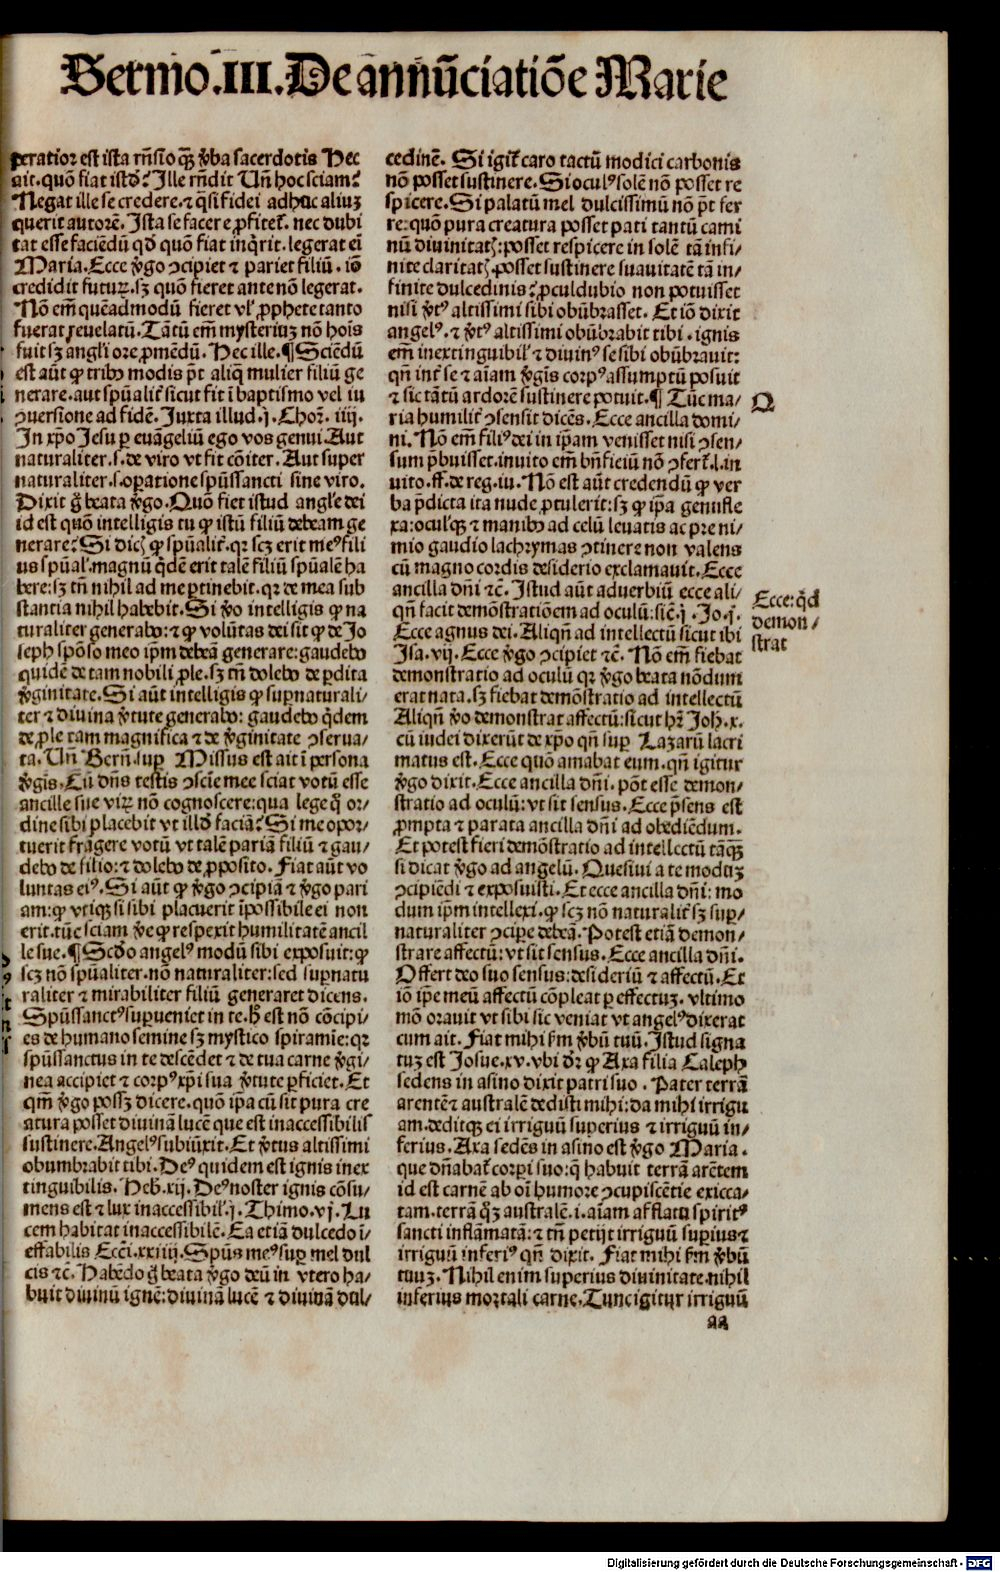 Sermo.III.De annũciatiõe Marie
peratior est ista rñsio qȝ v̾ba sacerdotis Hec
ait.quõ fiat istd̾? Ille rñdit Uñ hoc sciam?
Negat ille se credere.⁊ q̃si fidei adhuc aliuȝ
querit autorẽ. Ista se facere ꝓfitet̃. nec dubi
tat esse faciẽdũ qd̾ quõ fiat inq̃rit. legerat eĩ
Maria. Ecce v̾go ꝯcipiet ⁊ pariet filiũ. iõ
credidit futurꝫ. sȝ quõ fieret ante nõ legerat.
Nõ em̃ quẽadmodũ fieret vl̾ ꝓphete tanto
fuerat reuelatũ. Tãtũ em̃ mysteriuȝ nõ hoĩs
fuit sȝ angl̾i ore ꝓmẽdũ. Hec ille. ¶ Sciẽdũ
est aũt ꝙ tribꝰ modis p̃t aliq̃ mulier filiũ ge
nerare. aut spũalit̃ sicut fit ĩ baptismo vel in
ꝯuersione ad fidẽ. Iuxta illud .j. Choꝝ. iiij.
In xp̃o Jesu ꝑ euãgeliũ ego vos genui. Aut
naturaliter .s. de viro vt fit cõiter. Aut super
naturaliter .s. oꝑatione spũssancti sine viro.
Dixit g̾ beata v̾go. Quõ fiet istud angl̾e dei
id est quõ intelligis tu ꝙ istũ filiũ debeam ge
nerare? Si dicꝭ ꝙ spũalit̃. qꝛ scȝ erit meꝰ fili
us spũal̾. magnũ q̃dẽ erit talẽ filiũ spũalẽ ha
bere: sȝ tñ nihil ad me ꝑtinebit. qꝛ de mea sub
stantia nihil habebit. Si v̾o intelligis ꝙ na
turaliter generabo: ⁊ ꝙ volũtas dei sit ꝙ de Jo
seph spõso meo ip̃m debeã generare: gaudebo
quidẽ de tam nobili ꝓle. sȝ tñ dolebo de ꝑdita
v̾ginitate. Si aũt intelligis ꝙ suꝑnaturali-
ter ⁊ diuina v̾tute generabo: gaudebo q̃dem
de ꝓle tam magnifica ⁊ de v̾ginitate ꝯserua-
ta. Uñ Berñ. suꝑ Missus est ait ĩ persona
v̾gĩs. Cũ dñs testis ꝯscĩe mee sciat votũ esse
ancille sue virꝫ nõ cognoscere: qua lege q̊ or-
dine sibi placebit vt illd̾ faciã? Si me opor-
tuerit frãgere votũ vt talẽ pariã filiũ ⁊ gau-
debo de filio: ⁊ dolebo de ꝓposito. Fiat aũt vo
luntas eiꝰ. Si aũt ꝙ v̾go ꝯcipiã ⁊ v̾go pari
am: ꝙ vtiqꝫ si sibi placuerit ĩpossibile ei non
erit. tũc sciam v̾e ꝙ respexit humilitatẽ ancil
le sue. ¶ Scd̾o angelꝰ modũ sibi exposuit: ꝙ
scȝ nõ spũaliter. nõ naturaliter: sed suꝑnatu
raliter ⁊ mirabiliter filiũ generaret dicens.
Spũssanctꝰ suꝑueniet in te. h̾ est nõ cõcipi-
es de humano semine sȝ mystico spiramĩe: qꝛ
spũssanctus in te descẽdet ⁊ de tua carne v̾gi-
nea accipiet ⁊ corpꝰ xp̃i sua v̾tute ꝑficiet. Et
qm̃ v̾go possȝ dicere. quõ ip̃a cũ sit pura cre
atura posset diuinã lucẽ que est inaccessibilis
sustinere. Angelꝰ subiũxit. Et v̾tus altissimi
obumbrabit tibi. Deꝰ quidem est ignis inex
tinguibilis. Heb̾. xij. Deꝰ noster ignis cõsu-
mens est ⁊ lux inaccessibil̾. j. Thimo. vj. Lu
cem habitat inaccessibilẽ. Ea etiã dulcedo ĩ-
effabilis Ecc̃i. xxiiij. Spũs meꝰ suꝑ mel dul
cis ⁊c̃. Habẽdo g̾ beata v̾go deũ in vtero ha-
buit diuinũ ignẽ: diuinã lucẽ ⁊ diuinã dul-
cedinẽ. Si igit̃ caro tactũ modici carbonis
nõ posset sustinere. Si oculꝰ solẽ nõ posset re
spicere. Si palatũ mel dulcissimũ nõ p̃t fer
re: quõ pura creatura posset pati tantũ cami
nũ diuinitatꝭ: posset respicere in solẽ tã infi-
nite claritatꝭ. posset sustinere suauitatẽ tã in-
finite dulcedinis? ꝓculdubio non potuisset
nisi v̾tꝰ altissimi sibi obũbrasset. Et iõ dixit
angelꝰ. ⁊ v̾tꝰ altissimi obũbrabit tibi. ignis
em̃ inextinguibil̾ ⁊ diuinꝰ se sibi obũbrauit:
qñ int̃ se ⁊ aĩam v̾gĩs corpꝰ assumptũ posuit
⁊ sic tãtũ ardorẽ sustinere potuit. ¶ Tũc ma-
ria humilit̃ ꝯsensit dicẽs. Ecce ancilla domi-
ni. Nõ em̃ filiꝰ dei in ip̃am venisset nisi ꝯsen-
sum p̃buisset. inuito em̃ bñficiũ nõ ꝯfert̃. l. in
uito. ff. de reg. iu. Nõ est aũt credendũ ꝙ ver
ba p̃dicta ita nude ꝓtulerit: sȝ ꝙ ip̃a genufle
xa: oculꝭqꝫ ⁊ manibꝰ ad celũ leuatis ac pre ni-
mio gaudio lachrymas ꝯtinere non valens
cũ magno cordis desiderio exclamauit. Ecce
ancilla dñi ⁊c̃. Istud aũt aduerbiũ ecce ali-
qñ facit demõstratiõem ad oculũ: sic̃ .j. Jo. j.
Ecce agnus dei. Aliqñ ad intellectũ sicut ibi
Isa. vij. Ecce v̾go ꝯcipiet ⁊c̃. Nõ em̃ fiebat
demonstratio ad oculũ qꝛ v̾go beata nõdum
erat nata. sȝ fiebat demõstratio ad intellectũ
Aliqñ v̾o demonstrat affectũ: sicut hr̃ Joh. x.
cũ iudei dixerũt de xp̃o qñ suꝑ Lazarũ lacri
matus est. Ecce quõ amabat eum. qñ igitur
v̾go dixit. Ecce ancilla dñi. põt esse demon-
stratio ad oculũ: vt sit sensus. Ecce p̃sens est
ꝓmpta ⁊ parata ancilla dñi ad obediẽdum.
Et potest fieri demõstratio ad intellectũ tãqȝ
si dicat v̾go ad angelũ. Quesiui a te moduȝ
ꝯcipiẽdi ⁊ exposuisti. Et ecce ancilla dñi: mo
dum ip̃m intellexi. ꝙ scȝ nõ naturalit̃ sȝ suꝑ-
naturaliter ꝯciꝑe debeã. Potest etiã demon-
strare affectũ: vt sit sensus. Ecce ancilla dñi.
Offert deo suo sensus: desideriũ ⁊ affectũ. Et
iõ ip̃e meũ affectũ cõpleat ꝑ effectuȝ. vltimo
mõ orauit vt sibi sic veniat vt angelꝰ dixerat
cum ait. Fiat mihi ẜm v̾bũ tuũ. Istud signa
tuȝ est Josue. xv. vbi dr̃ ꝙ Axa filia Caleph
sedens in asino dixit patri suo. Pater terrã
arentẽ ⁊ australẽ dedisti mihi: da mihi irrigu
am. deditqꝫ ei irriguũ superius ⁊ irriguũ in-
ferius. Axa sedẽs in asino est v̾go Maria.
que dñabat̃ corpi suo: q̃ habuit terrã arẽtem
id est carnẽ ab oĩ humore ꝯcupiscẽtie exicca-
tam. terrã qꝫ australẽ .i. aĩam afflatu spiritꝰ
sancti inflãmatã: ⁊ tñ petijt irriguũ suꝑius ⁊
irriguũ inferiꝰ qñ dixit. Fiat mihi ẜm v̾bũ
tuuȝ. Nihil enim superius diuinitate. nihil
inferius mortali carne. Tunc igitur irriguũ
aa
Q
Ecce: q̃d
demon-
strat
Digitalisierung gefördert durch die Deutsche Forschungsgemeinschaft - DFG